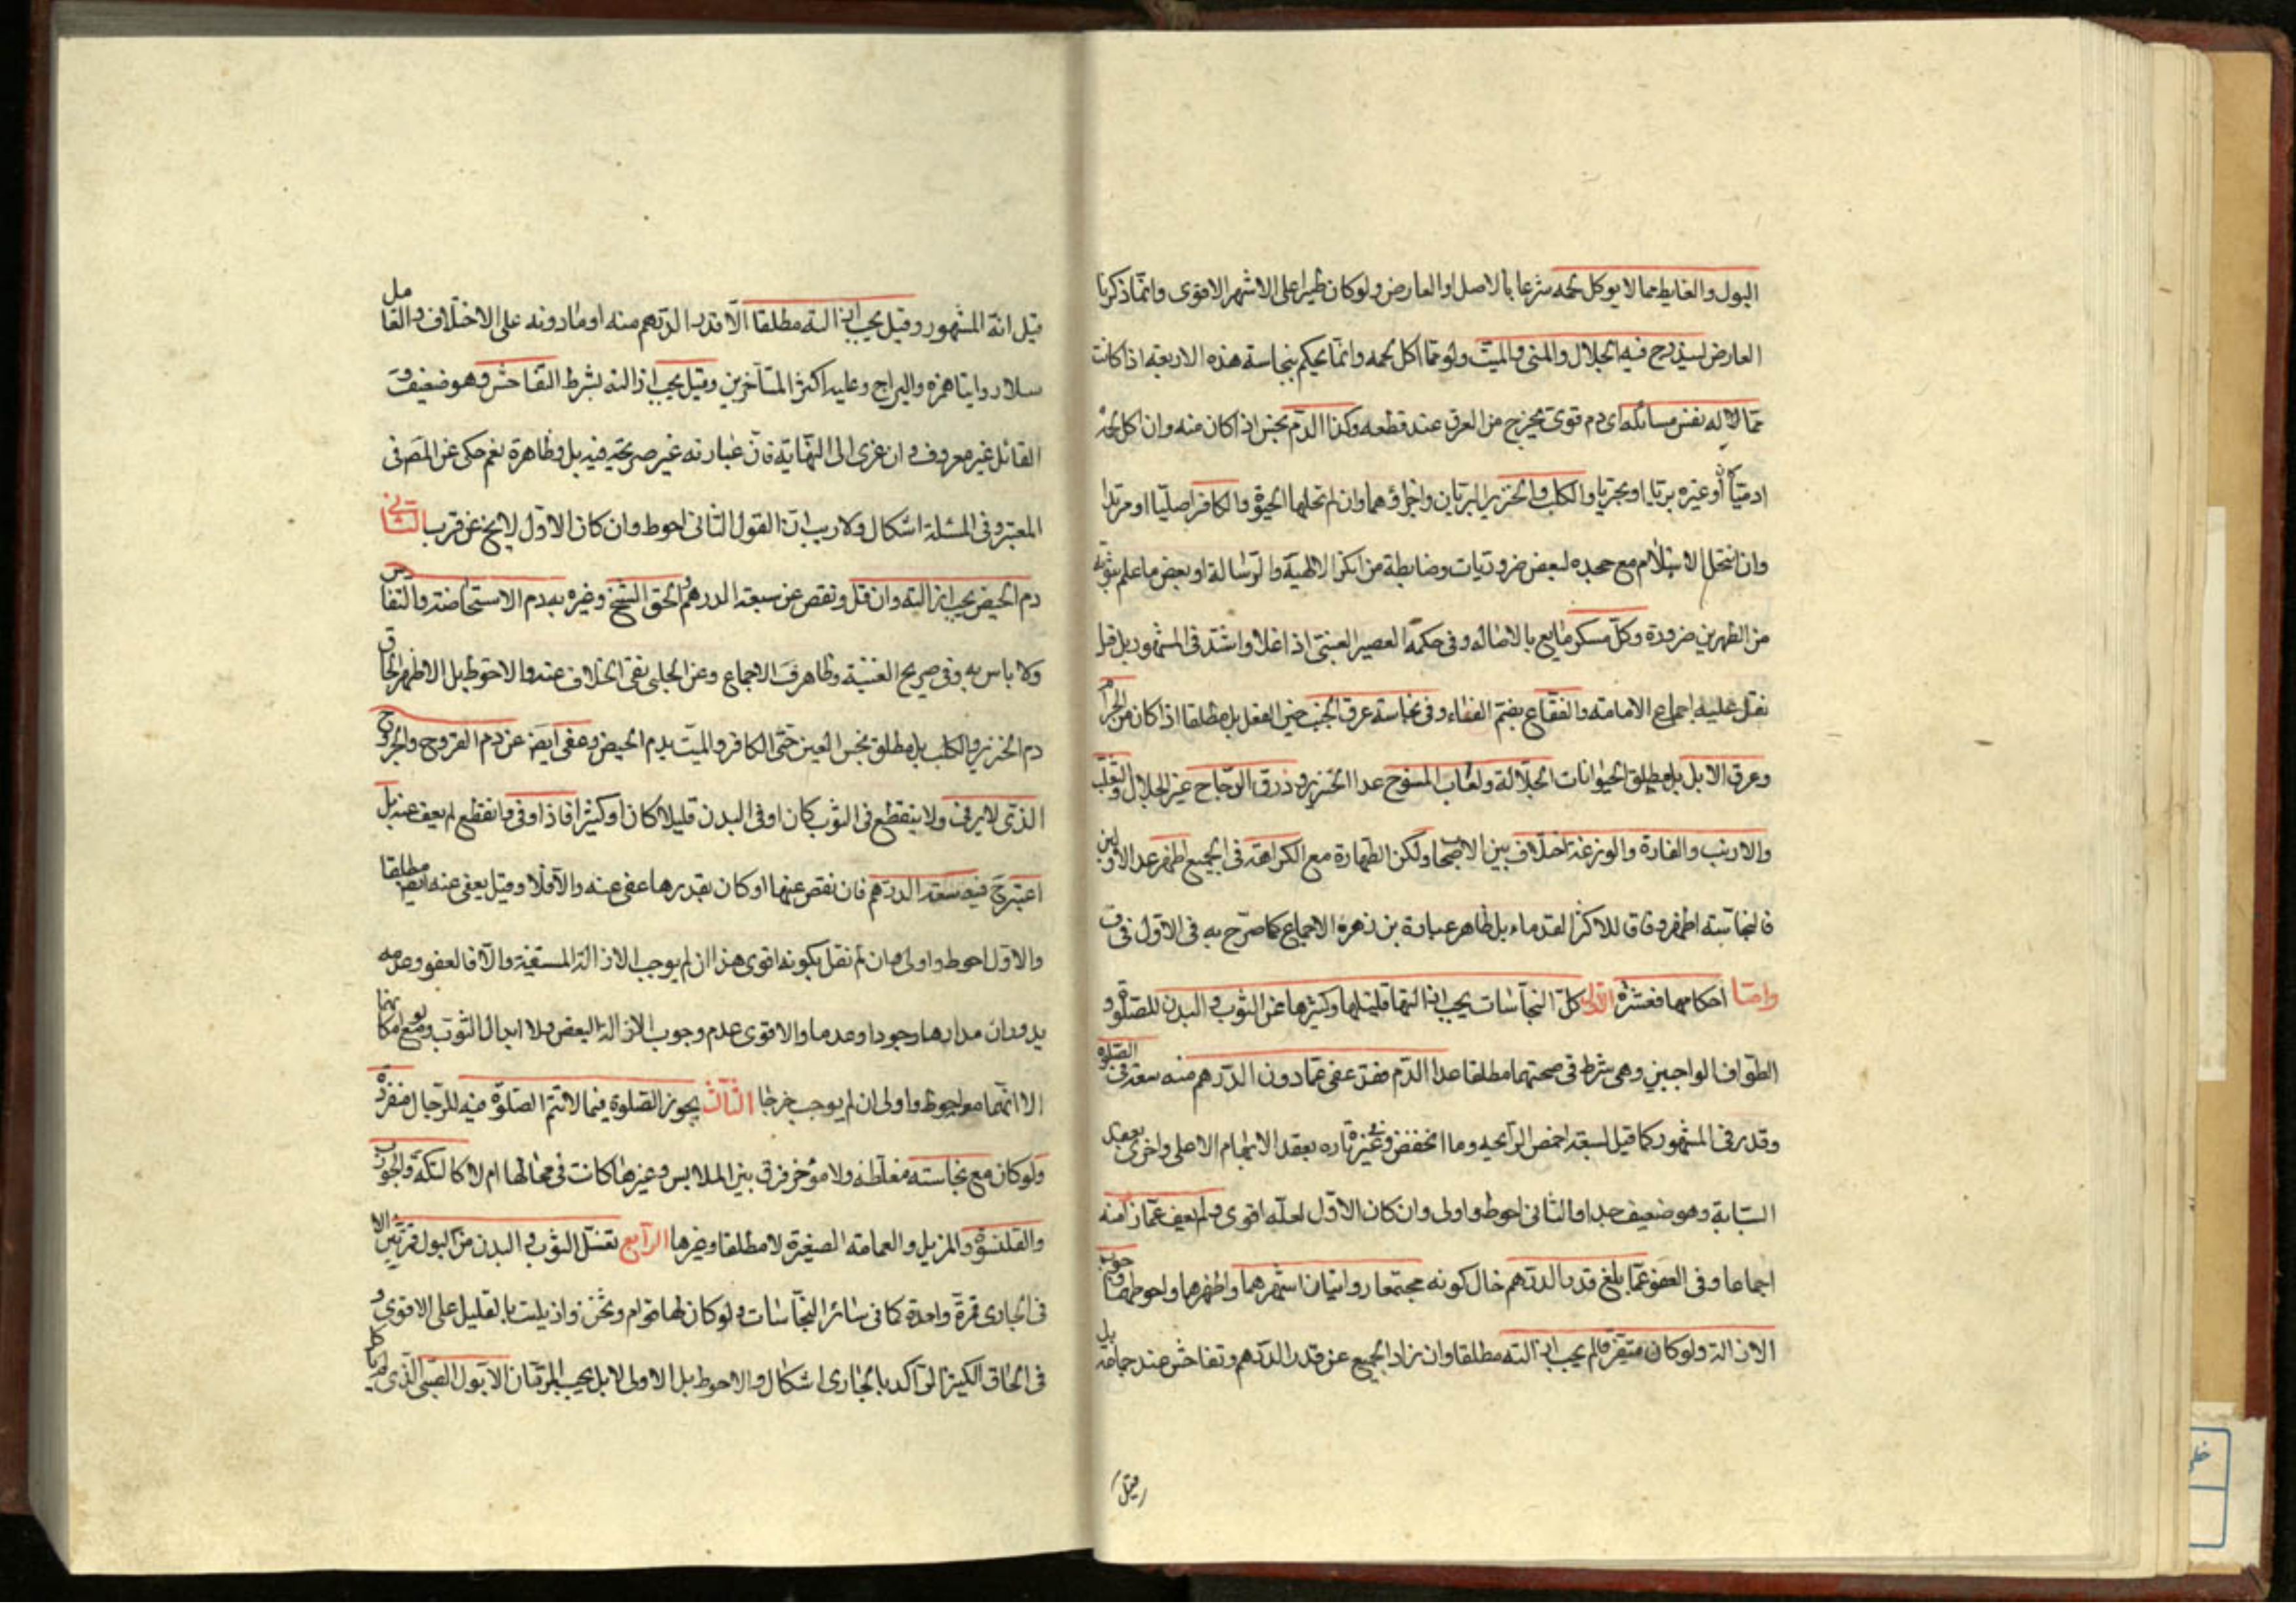 البول والغايط مما لا يوكل لحمه شرعا بالاصل او العارض ولو كان طيرا على الاشهر الاقوى وانما ذكرنا
العارض ليندرج فيه الجلال والمنى والميت ولو مما اكل لحمه وانما يحكم بنجاسة هذه الاربعة اذا كانت
مما له نفس سائلة اى دم قوى يخرج من العرق عند قطعه وكذا الدم نجس اذا كان منه وان اكل لحمه
ادميا كان أو غيره بريا او بحريا والكلب والخنزير البريان واجزاؤهما وان لم تحلها الحيوة والكافر اصليا او مرتدا
وان انتحل الاسلام مع جحده لبعض ضروريات وضابطه من انكر الالهية والرسالة او بعض ما علم ثبوته
من الدين ضرورة وكل مسكر مايع بالاصالة وفى حكمه العصير العنبى اذا غلا واشتد فى المشهور بل قيل
نقل عليه اجماع الامامية والفقاع بضم الفاء وفى نجاسة عرق الجنب حين الفعل بل مطلقا اذا كان من الحرام
وعرق الابل بل مطلق الحيوانات الجلالة ولعاب المسوخ عدا الخنزير وذرق الدجاج غير الجلال والثعلب
والارنب والفارة والوزغة اختلاف بين الاصحاب ولكن الطهارة مع الكراهة فى الجميع اظهر عدا الاولين
فالنجاسة اظهر وفاقا للاكثر القدماء بل ظاهر عبارة بن زهرة الاجماع كما صرح به فى الاول فى ف
واما احكامها فعشرة الاول كل النجاسات يجب ازالتها قليلها وكثيرها عن الثوب والبدن للصلوة و
الطواف الواجبين وهى شرط فى صحتهما مطلقا عدا الدم فقد عفى عما دون الدرهم منه سعة فى الصلوة
وقدر فى المشهور كما قيل بسعة اخمص الراحة وما انخفض وغيره تاره بعقد الابهام الاعلى واخرى بعقد
السبابة وهو ضعيف جدا والثانى احوط واولى وان كان الاول لعله اقوى ولم يعف عما زاد منه
اجماعا وفى العفو عما بلغ قدر الدرهم حال كونه مجتمعا روايتان اشهرهما واظهرهما واحوطهما وجوب
الازالة ولو كان متفرقا لم يجب ازالته مطلقا وان زاد الجميع عن قدر الدرهم وتفاحش عند جماعة بل
قيل
قيل انه المشهور وقيل يجب ازالته مطلقا الا قدر الدرهم منه او ما دونه على الاختلاف والقائل
سلار وابنا حمزه والبراج وعليه اكثر المتأخرين وقيل يجب ازالته بشرط التفاحش وهو ضعيف و
القائل غير معروف وان عزى الى النهاية فان عبارته غير صريحة فيه بل ولا ظاهرة نعم حكى عن المص فى
المعتبر وفى المسئلة اشكال ولا ريب ان القول الثانى احوط وان كان الاول لا يخ عن قرب الثانى
دم الحيض يجب ازالته وان قل ونقص عن سعة الدرهم والحق الشيخ وغيره به دم الاستحاضة والنفاس
ولا باس به وفى صريح الغنية وظاهر ف الاجماع وعن الحلى نفى الخلاف عنه والاحوط بل الاظهر الحاق
دم الخنزير والكلب بل مطلق نجس العين حتى الكافر والميت بدم الحيض وعفى ايض عن دم القروح والجروح
الذى لا يرقى ولا ينقطع فى الثوب كان او فى البدن قليلا كان او كثيرا فاذا رقى وانقطع لم يعف عنه بل
اعتبر ح فيه سعة الدرهم فان نقص عنها او كان بقدرها عفى عنه والا فلا وقيل يعفى عنه ايض مطلقا
والاول احوط واولى وان لم نقل بكونه اقوى هذا ان لم يوجب الازالة المشقة والا فالعفو وعدمه
يدوران مدارها وجودا وعدما والاقوى عدم وجوب ازالة البعض ولا ابدال الثوب ومع امكانهما
الا انهما معه احوط واولى ان لم يوجب حرجا الثالث يجوز الصلوة فيما لا تتم الصلوة فيه للرجال منفردة
ولو كان مع نجاسته مغلظة ولا مؤخر فرق بين الملابس وغيرها كانت فى محالها ام لا كالتكة والجورب
والقلنسوة والمزيل والعمامة الصغيرة لا مطلقا وغيرها الرابع تغسل الثوب والبدن من البول مرتين الا
فى الجارى فمرة واحدة كما فى سائر النجاسات ولو كان لها قوام وثخن وازيلت بالقليل على الاقوى و
فى الحاق الكثير الراكد بالجارى اشكال والاحوط بل الاولى لا بل يجب المرتان الا بول الصبى الذى لم ياكل